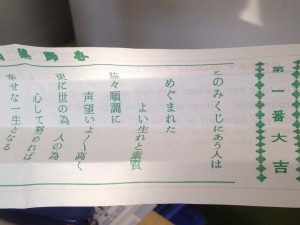 第一番大吉
このみくじにあう人は
めぐまれた
よい生れと素質
益々順調に
声望いよ〱高く
更に世の為 人の為
心して努めれば
幸せな一生となる